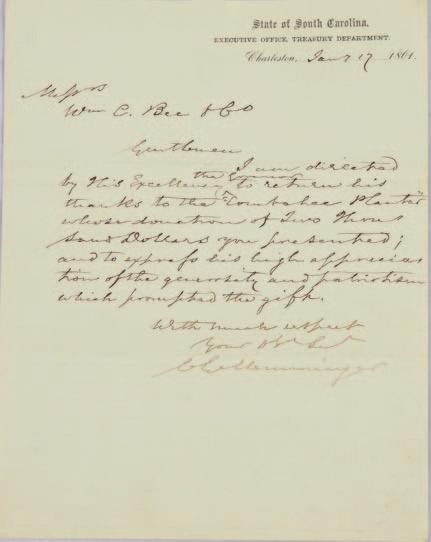 State of South Carolina.
EXECUTIVE OFFICE, TREASURY DEPARTMENT.
Charleston, Jany 17 1861.
Messrs
Wm C. Bee & Co
Gentlemen
I am directed
by His Excellency the Governor to return his
thanks to the Combahee Planter
whose donation of Two Thou
sand Dollars you presented;
and to express his high apprecia
tion of the generosity and patriotism
which prompted the gift.
With much respect
Your Obt Svt
C G Memminger